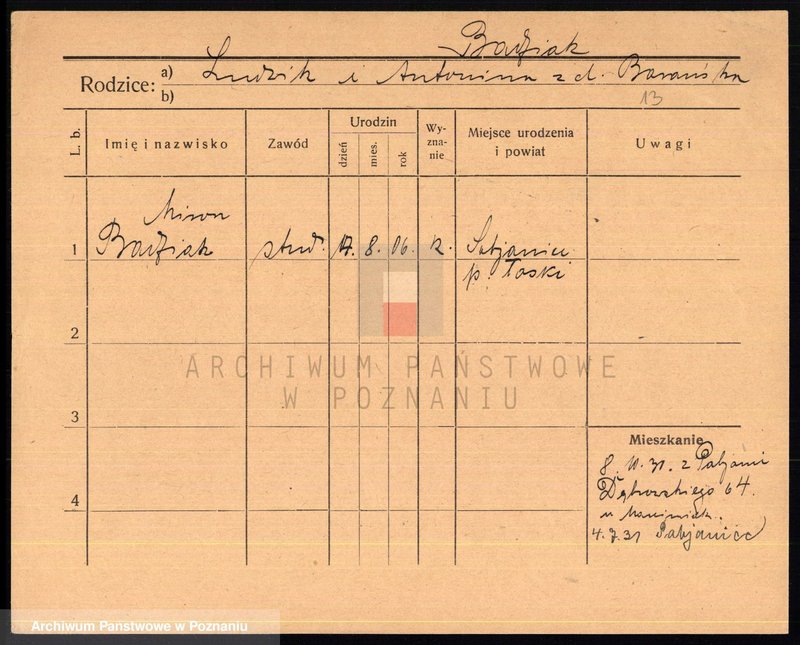 Badziak
Rodzice: a) Ludwik i Antonina z d. Barańska
b)
13
L. b.
Imię i nazwisko
Zawód
Urodzin
dzień
mies.
rok
Wy-
zna-
nie
Miejsce urodzenia
i powiat
Uwagi
Miron
1 Badziak stud. 17. 8. 06. k. Pabjanice
p. Łaski
2
ARCHIWUM PAŃSTWOWE
W POZNANIU
3
Mieszkanie
8. 10. 30. z Pabjanic
4 Dąbrowskiego 64.
u
4. 7. 31 Pabjanice
Archiwum Państwowe w Poznaniu